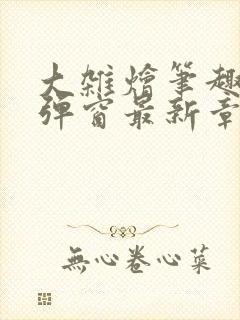 大雜燴筆趣
彈窗最新章
無心卷心菜